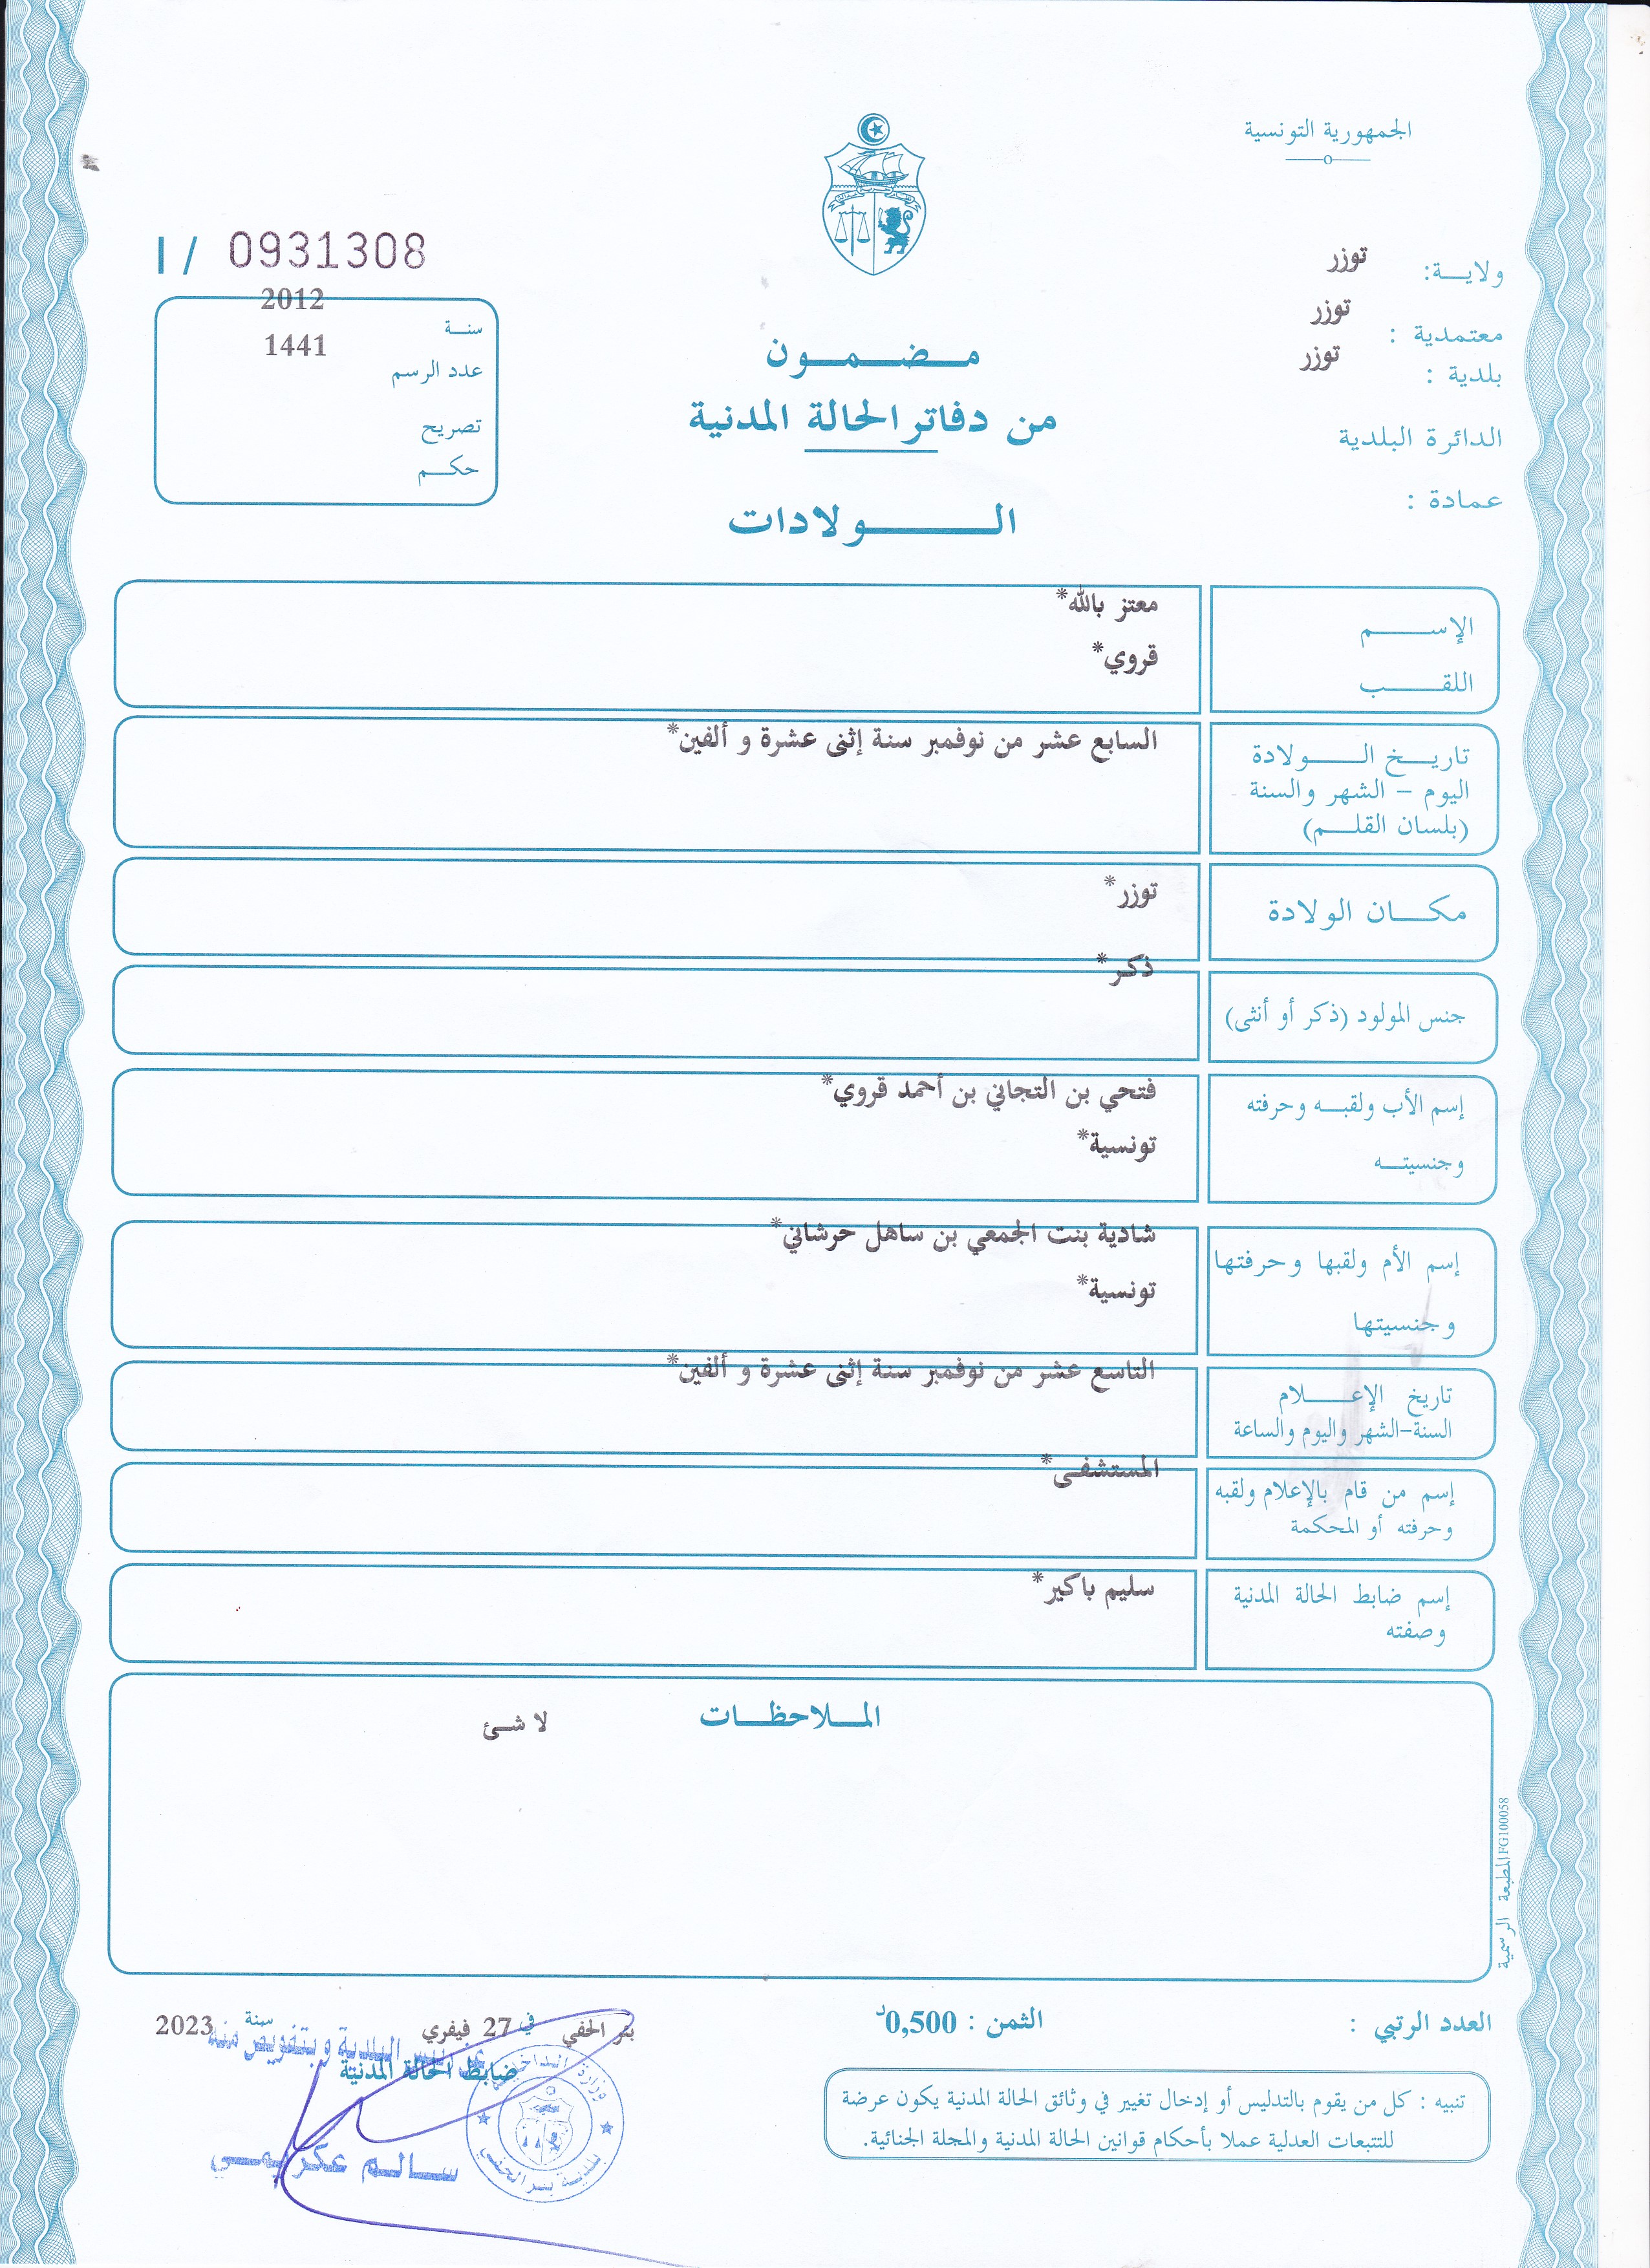 الجمهورية التونسية
ولايـــة: توزر
معتمدية : توزر
بلدية : توزر
الدائرة البلدية
عمادة :
مـضـمـون
من دفاتر الحالة المدنية
الـولادات
I / 0931308
سنـة 2012
عدد الرسم 1441
تصريح
حكـم
الإســـم معتز بالله*
اللقـــب قروي*
تاريـخ الـولادة السابع عشر من نوفمبر سنة إثنى عشرة و ألفين*
اليوم - الشهر والسنة
(بلسان القلـم)
مكـان الولادة توزر*
جنس المولود (ذكر أو أنثى) ذكر*
إسم الأب ولقبـه وحرفته فتحي بن التجاني بن أحمد قروي*
وجنسيتـه تونسية*
إسم الأم ولقبها وحرفتها شادية بنت الجمعي بن ساهل حرشاني*
وجنسيتها تونسية*
تاريخ الإعـلام التاسع عشر من نوفمبر سنة إثنى عشرة و ألفين*
السنة-الشهر واليوم والساعة
إسم من قام بالإعلام ولقبه المستشفى*
وحرفته أو المحكمة
إسم ضابط الحالة المدنية سليم باكير*
وصفته
المـلاحظـات
لا شئ
المطبعة الرسمية FG100058
العدد الرتبي :
الثمن : 0,500د
بئر الحفي في 27 فيفري سنة 2023
ضابط الحالة المدنية
البلدية وبتفويض منه
سـالـم عكريمـي
بلدية بئر الحفي
تنبيه : كل من يقوم بالتدليس أو إدخال تغيير في وثائق الحالة المدنية يكون عرضة
للتتبعات العدلية عملا بأحكام قوانين الحالة المدنية والمجلة الجنائية.